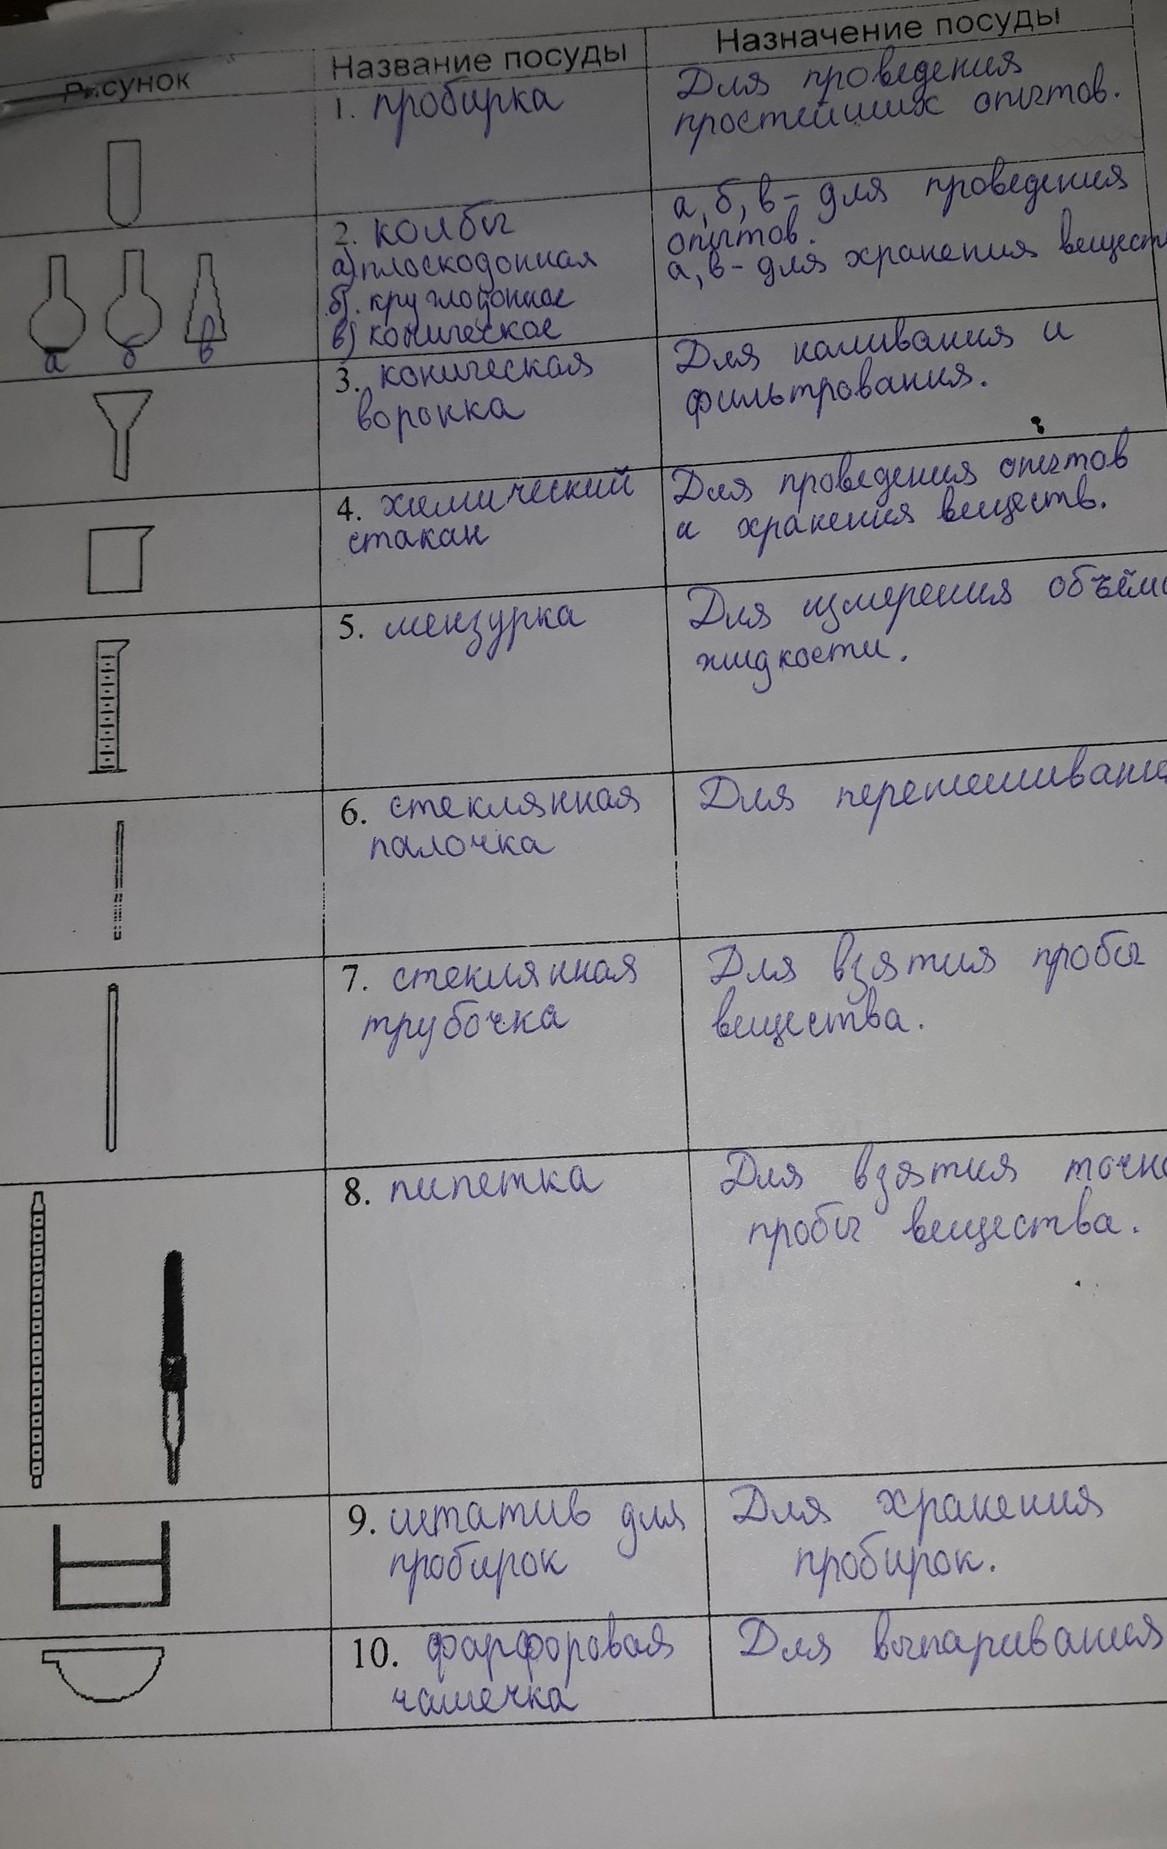 Рисунок
Название посуды
Назначение посуды
1. пробирка
Для проведения
простейших опытов.
а
б
в
2. колбы
а) плоскодонная
б). круглодонное
в) коническое
а, б, в - для проведения
опытов.
а, в - для хранения вещест
3. коническая
воронка
Для наливания и
фильтрования.
4. химический
стакан
Для проведения опытов
и хранения веществ.
5. мензурка
Для измерения объём
жидкости.
6. стеклянная
палочка
Для перемешивани
7. стеклянная
трубочка
Для взятия пробы
вещества.
8. пипетка
Для взятия точн
пробы вещества.
9. штатив для
пробирок
Для хранения
пробирок.
10. фарфоровая
чашечка
Для выпаривания